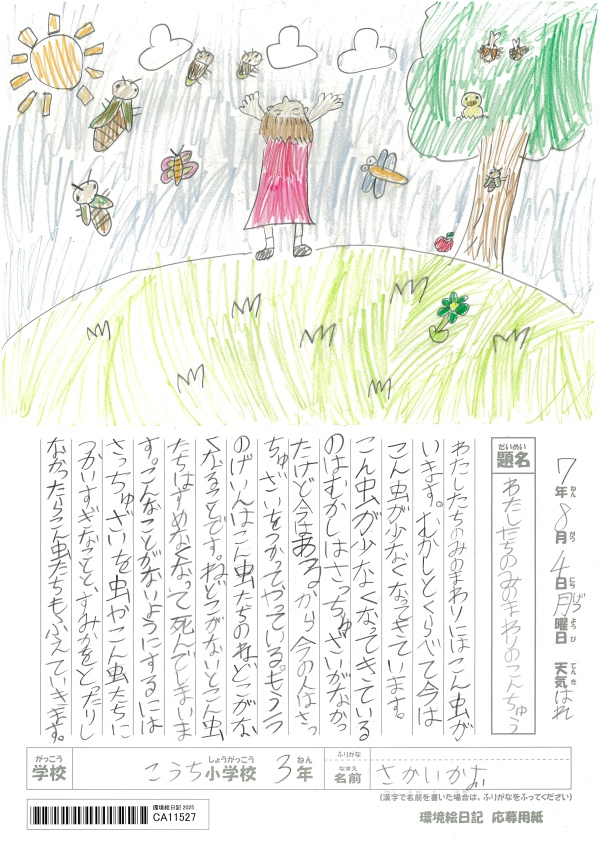 7年ねん8月がつ4日にち月げつ曜日ようび 天気てんきはれ
題名だいめい わたしたちのみのまわりのこんちゅう
わたしたちのみのまわりにはこん虫が
いきます。むかしとくらべて今は
こん虫が少なくなってきています。
こん虫が少なくなってきている
のはむかしはさっちゅざいがなかっ
たけど今はあるから今の人はさっ
ちゅざいをつかってやっている。もう一つ
のげいんはこん虫たちのねどこがな
くなることです。ねどこがないとこん虫
たちはずめなくなって死んでしまいま
す。こんなことがないようにするには
さっちゅざいを虫やこん虫たちに
つかいすぎなこと、すみかをとったりし
なかったらこん虫たちもふえていきます。
学校がっこう こうち小学校しょうがっこう 3年ねん ふりがな 名前なまえ さかいかお
(漢字で名前を書いた場合は、ふりがなをふってください)
環境絵日記 2025
CA11527
環境絵日記 応募用紙